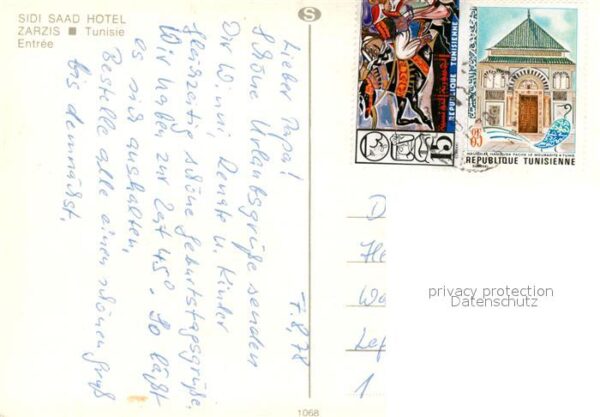 SIDI SAAD HOTEL
ZARZIS ■ Tunisie
Entrée
S
7.8.78
Lieber Papa!
Schöne Urlaubsgrüße senden
Dir Winni, Renate u. Kinder
Herzlich schöne Geburtstagsgrüße.
Wir haben zur Zeit 45°. So läßt
es sich aushalten.
Bestelle alle einen schönen Gruß
bis demnächst.
1068
REPUBLIQUE TUNISIENNE
الجمهورية التونسية
15
60
REPUBLIQUE TUNISIENNE
D
He
Wa
1
privacy protection
Datenschutz